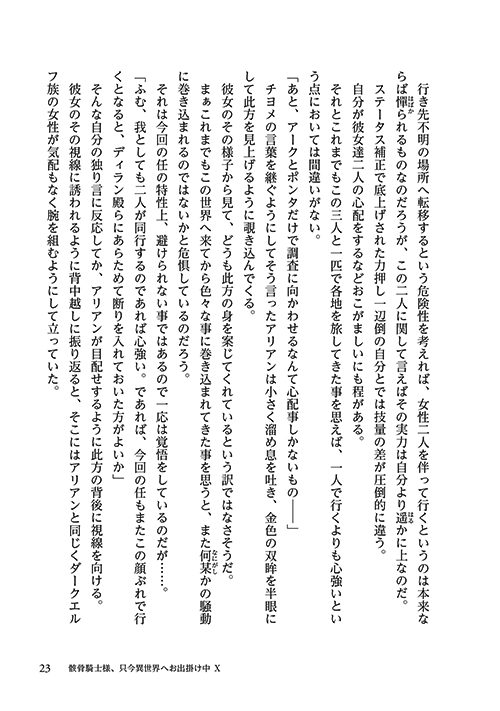 行き先不明の場所へ転移するという危険性を考えれば、女性二人を伴って行くというのは本来な
らば憚られるものなのだろうが、この二人に関して言えばその実力は自分より遥かに上なのだ。
ステータス補正で底上げされた力押し一辺倒の自分とでは技量の差が圧倒的に違う。
自分が彼女達二人の心配をするなどおこがましいにも程がある。
それとこれまでもこの三人と一匹で各地を旅してきた事を思えば、一人で行くよりも心強いとい
う点においては間違いがない。
「あと、アークとポンタだけで調査に向かわせるなんて心配事しかないもの――」
チヨメの言葉を継ぐようにしてそう言ったアリアンは小さく溜め息を吐き、金色の双眸を半眼に
して此方を見上げるように覗き込んでくる。
彼女のその様子から見て、どうも此方の身を案じてくれているという訳ではなさそうだ。
まぁこれまでもこの世界へ来てから色々な事に巻き込まれてきた事を思うと、また何某かの騒動
に巻き込まれるのではないかと危惧しているのだろう。
それは今回の任の特性上、避けられない事ではあるので一応は覚悟をしているのだが……。
「ふむ、我としても二人が同行するのであれば心強い。であれば、今回の任もまたこの顔ぶれで行
くとなると、ディラン殿らにあらためて断りを入れておいた方がよいか」
そんな自分の独り言に反応してか、アリアンが目配せするように此方の背後に視線を向ける。
彼女のその視線に誘われるように背中越しに振り返ると、そこにはアリアンと同じくダークエル
フ族の女性が気配もなく腕を組むようにして立っていた。
23 骸骨騎士様、只今異世界へお出掛け中 X